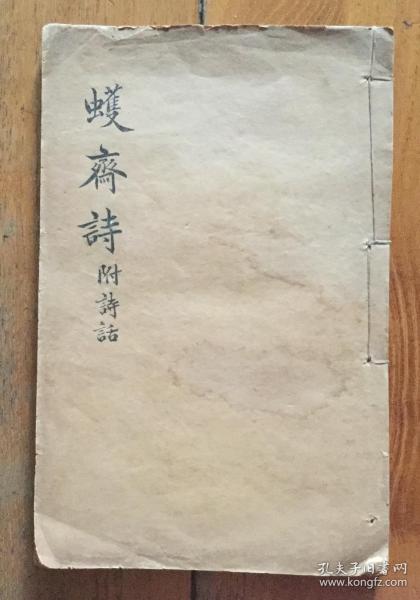 蠖齋詩
附詩話
孔夫子旧书网
www.kongfz.com